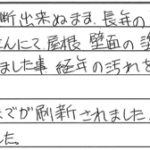 断出来ぬまま、長年の
さんにて、屋根、壁面の塗
ました事、経年の汚れを
までが刷新されました
した。